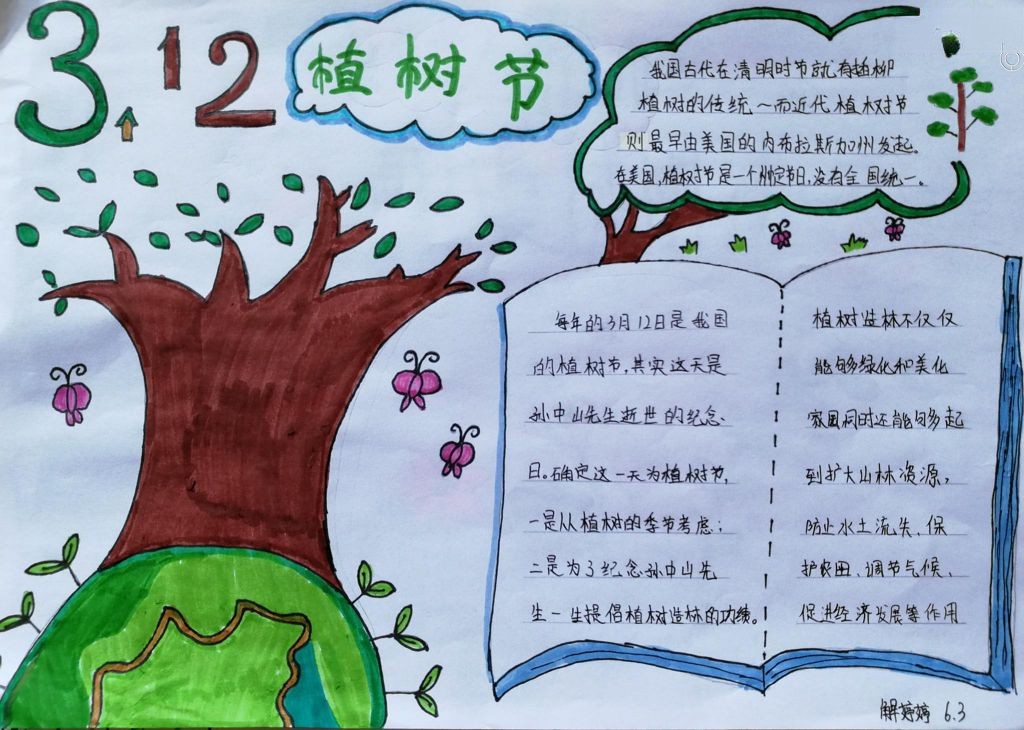 3.12
植树节
我国古代在清明时节就有插柳
植树的传统~而近代植树节
则最早由美国的内布拉斯加州发起。
在美国,植树节是一个州定节日,没有全国统一。
每年的3月12日是我国
的植树节,其实这天是
孙中山先生逝世的纪念
日。确定这一天为植树节,
一是从植树的季节考虑;
二是为了纪念孙中山先
生一生提倡植树造林的功绩。
植树造林不仅仅
能够绿化和美化
家园同时还能够起
到扩大山林资源,
防止水土流失、保
护农田、调节气候、
促进经济发展等作用
解婷婷 6.3